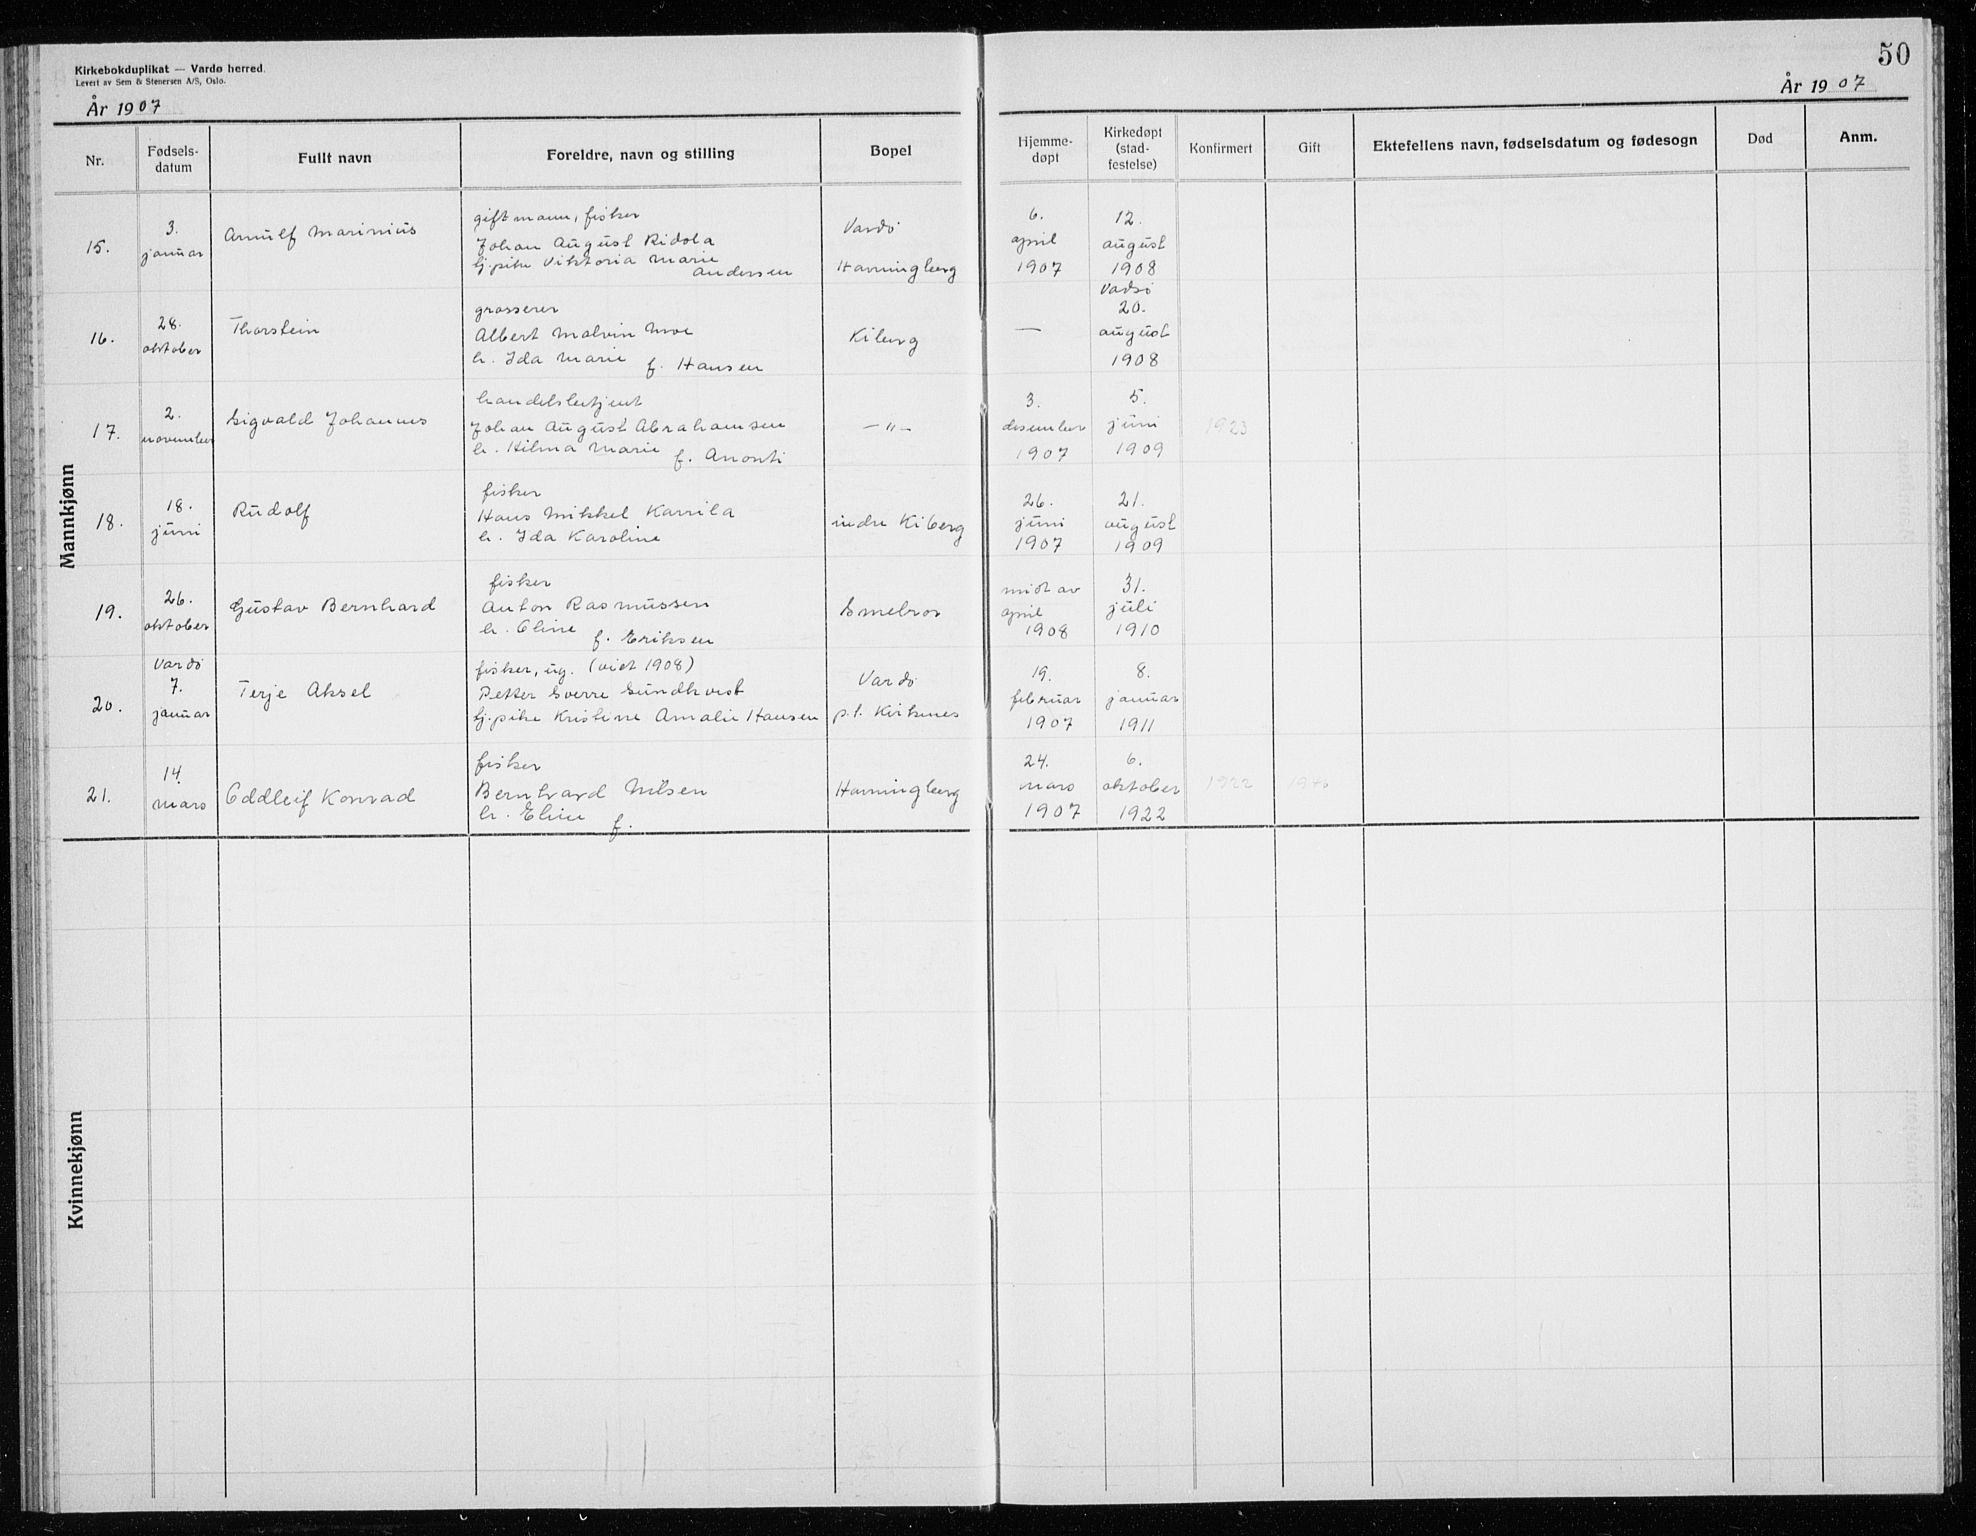 Kirkebokduplikat — Vardø herred.
Levert av Sem & Stenersen A/S, Oslo.
År 1907
50
År 1907
Nr.
Fødsels-
datum
Fullt navn
Foreldre, navn og stilling
Bopel
Hjemme-
døpt
Kirkedøpt
(stad-
festelse)
Konfirmert
Gift
Ektefellens navn, fødselsdatum og fødesogn
Død
Anm.
Mannkjønn
15.
3.
januar
Arnulf Marinius
gift mann, fisker
Johan August Ridola
tj.pike Viktoria Marie
Andersen
Vardö
Havningberg
6.
april
1907
12.
august
1908
16.
28.
oktober
Thorstein
grosserer
Albert Malvin Moe
h. Ida Marie f. Hansen
Kiberg
—
Vadsö
20.
august
1908
17.
2.
november
Sigvald Johannes
handelsbetjent
Johan August Abrahamsen
h. Hilma Marie f. Anonti
—"—
3.
desember
1907
5.
juni
1909
1923
18.
18.
juni
Rudolf
fisker
Hans Mikkel Karrila
h. Ida Karoline
indre Kiberg
26.
juni
1907
21.
august
1909
19.
26.
oktober
Gustav Bernhard
fisker
Anton Rasmussen
h. Oline f. Eriksen
Smelror
midt av
april
1908
31.
juli
1910
20.
Vardö
7.
januar
Terje Aksel
fisker, ug. (viet 1908)
Petter Sverre Sundkvist
tj.pike Kristine Amalie Hansen
Vardö
p.t. Kirkenes
19.
februar
1907
8.
januar
1911
21.
14.
mars
Oddleif Konrad
fisker
Bernhard Nilsen
h. Eline f.
Havningberg
24.
mars
1907
6.
oktober
1922
1922
1946
Kvinnekjønn